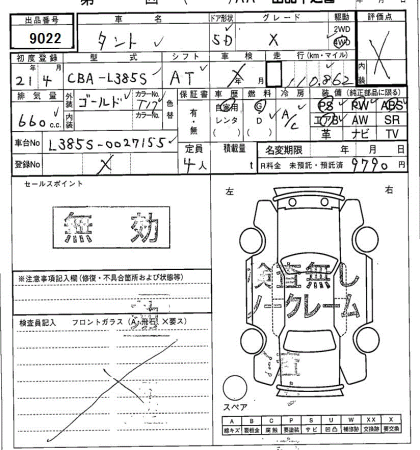 出品番号 車名 ドア形状 グレード 駆動 評価点
9022 タント 5D X 2WD 4WD
初度登録 型式 シフト 車検 走行(km・マイル) 内装
21年 4月 CBA-L385S AT X 年 月 110,862
排気量 外装 カラーNo. 色替 保証書 車歴 燃料 冷房 装備 (純正部品に限る)
660 c.c. ゴールド T17 有・無 自家用 G A/C PS RW ABS
内装 カラーNo. レンタ D エアB AW SR
( ) ( ) 革 ナビ TV
車台No L385S-0027155 定員 積載量 名変期限 年 月 日
登録No X 4人 t R料金 未預託・預託済 9790 円
セールスポイント 左 右
無効
検査無し
ノークレーム
※注意事項記入欄(修復・不具合箇所および状態等)
検査員記入 フロントガラス (A・飛石,X要ス)
スペア
A B C P S U W X XX
線キズ 要板金 腐蝕 要塗装 サビ 凹凸 補修跡 交換跡 要交換